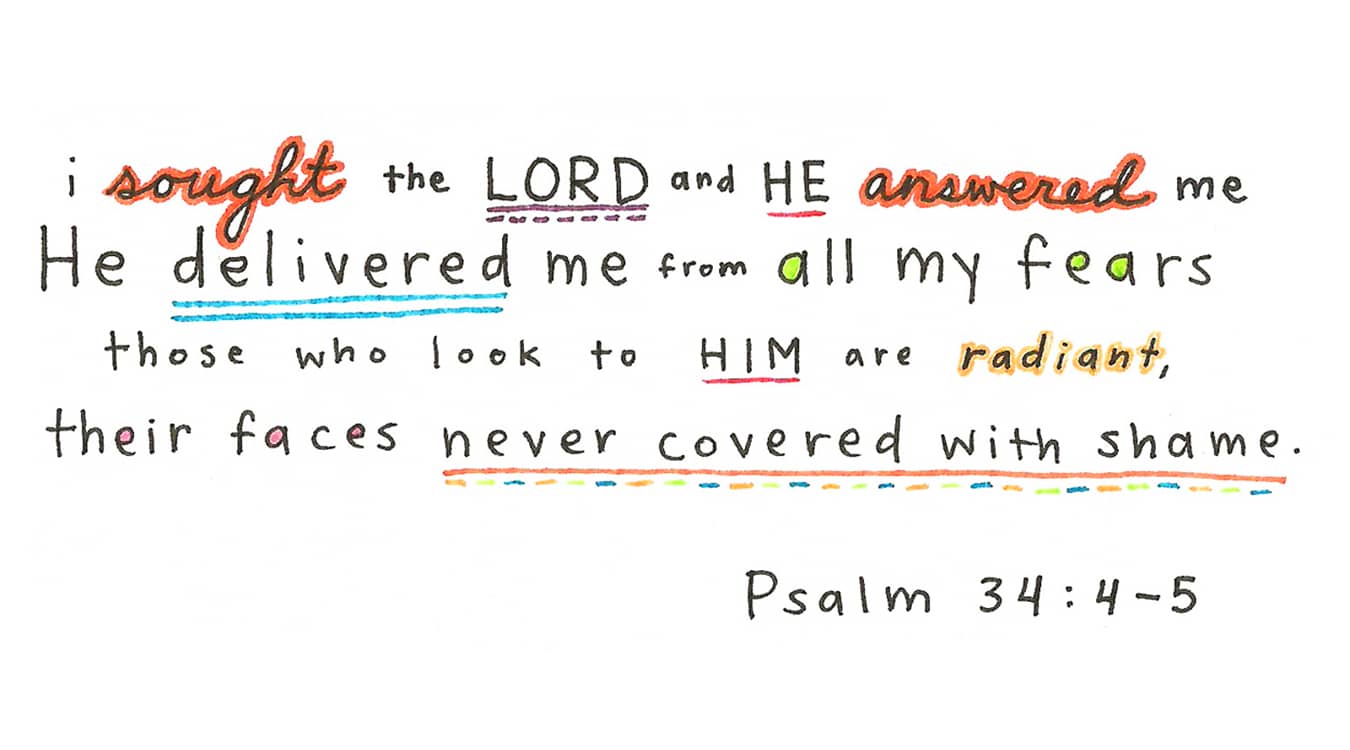 i sought the LORD and HE answered me
He delivered me from all my fears
those who look to HIM are radiant,
their faces never covered with shame.
Psalm 34:4-5